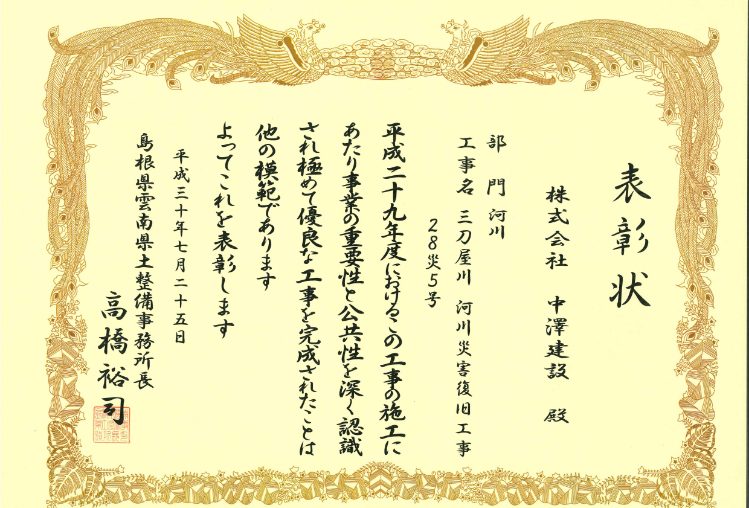 表彰状
株式会社 中澤建設 殿
部門 河川
工事名 三刀屋川 河川災害復旧工事
28災5号
平成二十九年度におけるこの工事の施工に
あたり事業の重要性と公共性を深く認識
され極めて優良な工事を完成されたことは
他の模範であります
よってこれを表彰します
平成三十年七月二十五日
島根県雲南県土整備事務所長
高橋裕司